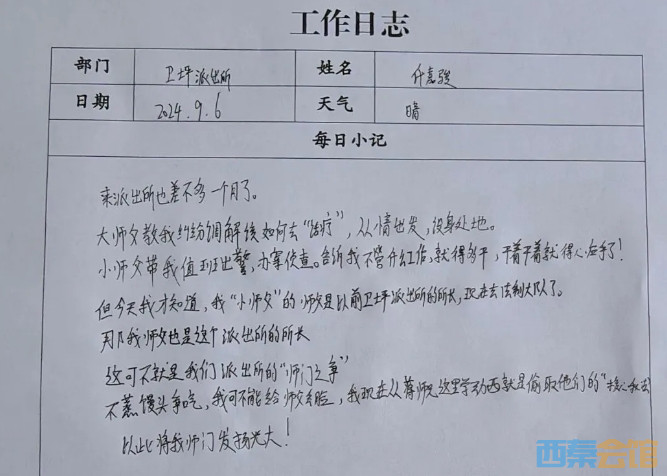 工作日志
部门 卫坪派出所 姓名 任嘉骏
日期 2024.9.6 天气 晴
每日小记
来派出所也差不多一个月了。
大师父教我纠纷调解该如何去“治疗”，从情出发，设身处地。
小师父带我值班出警，办案侦查。告诉我不管什么工作，就得多干，干着干着就得心应手了！
但今天我才知道，我“小师父”的师父是以前卫坪派出所的所长，现在去法制大队了。
那我师父也是这个派出所的所长
这可不就是我们派出所的“师门之争”
不蒸馒头争口气，我可不能给师父丢脸，我现在从蒋师兄这里学东西就是偷取他们的“核心机密
以此将我师门发扬光大！
西秦会馆